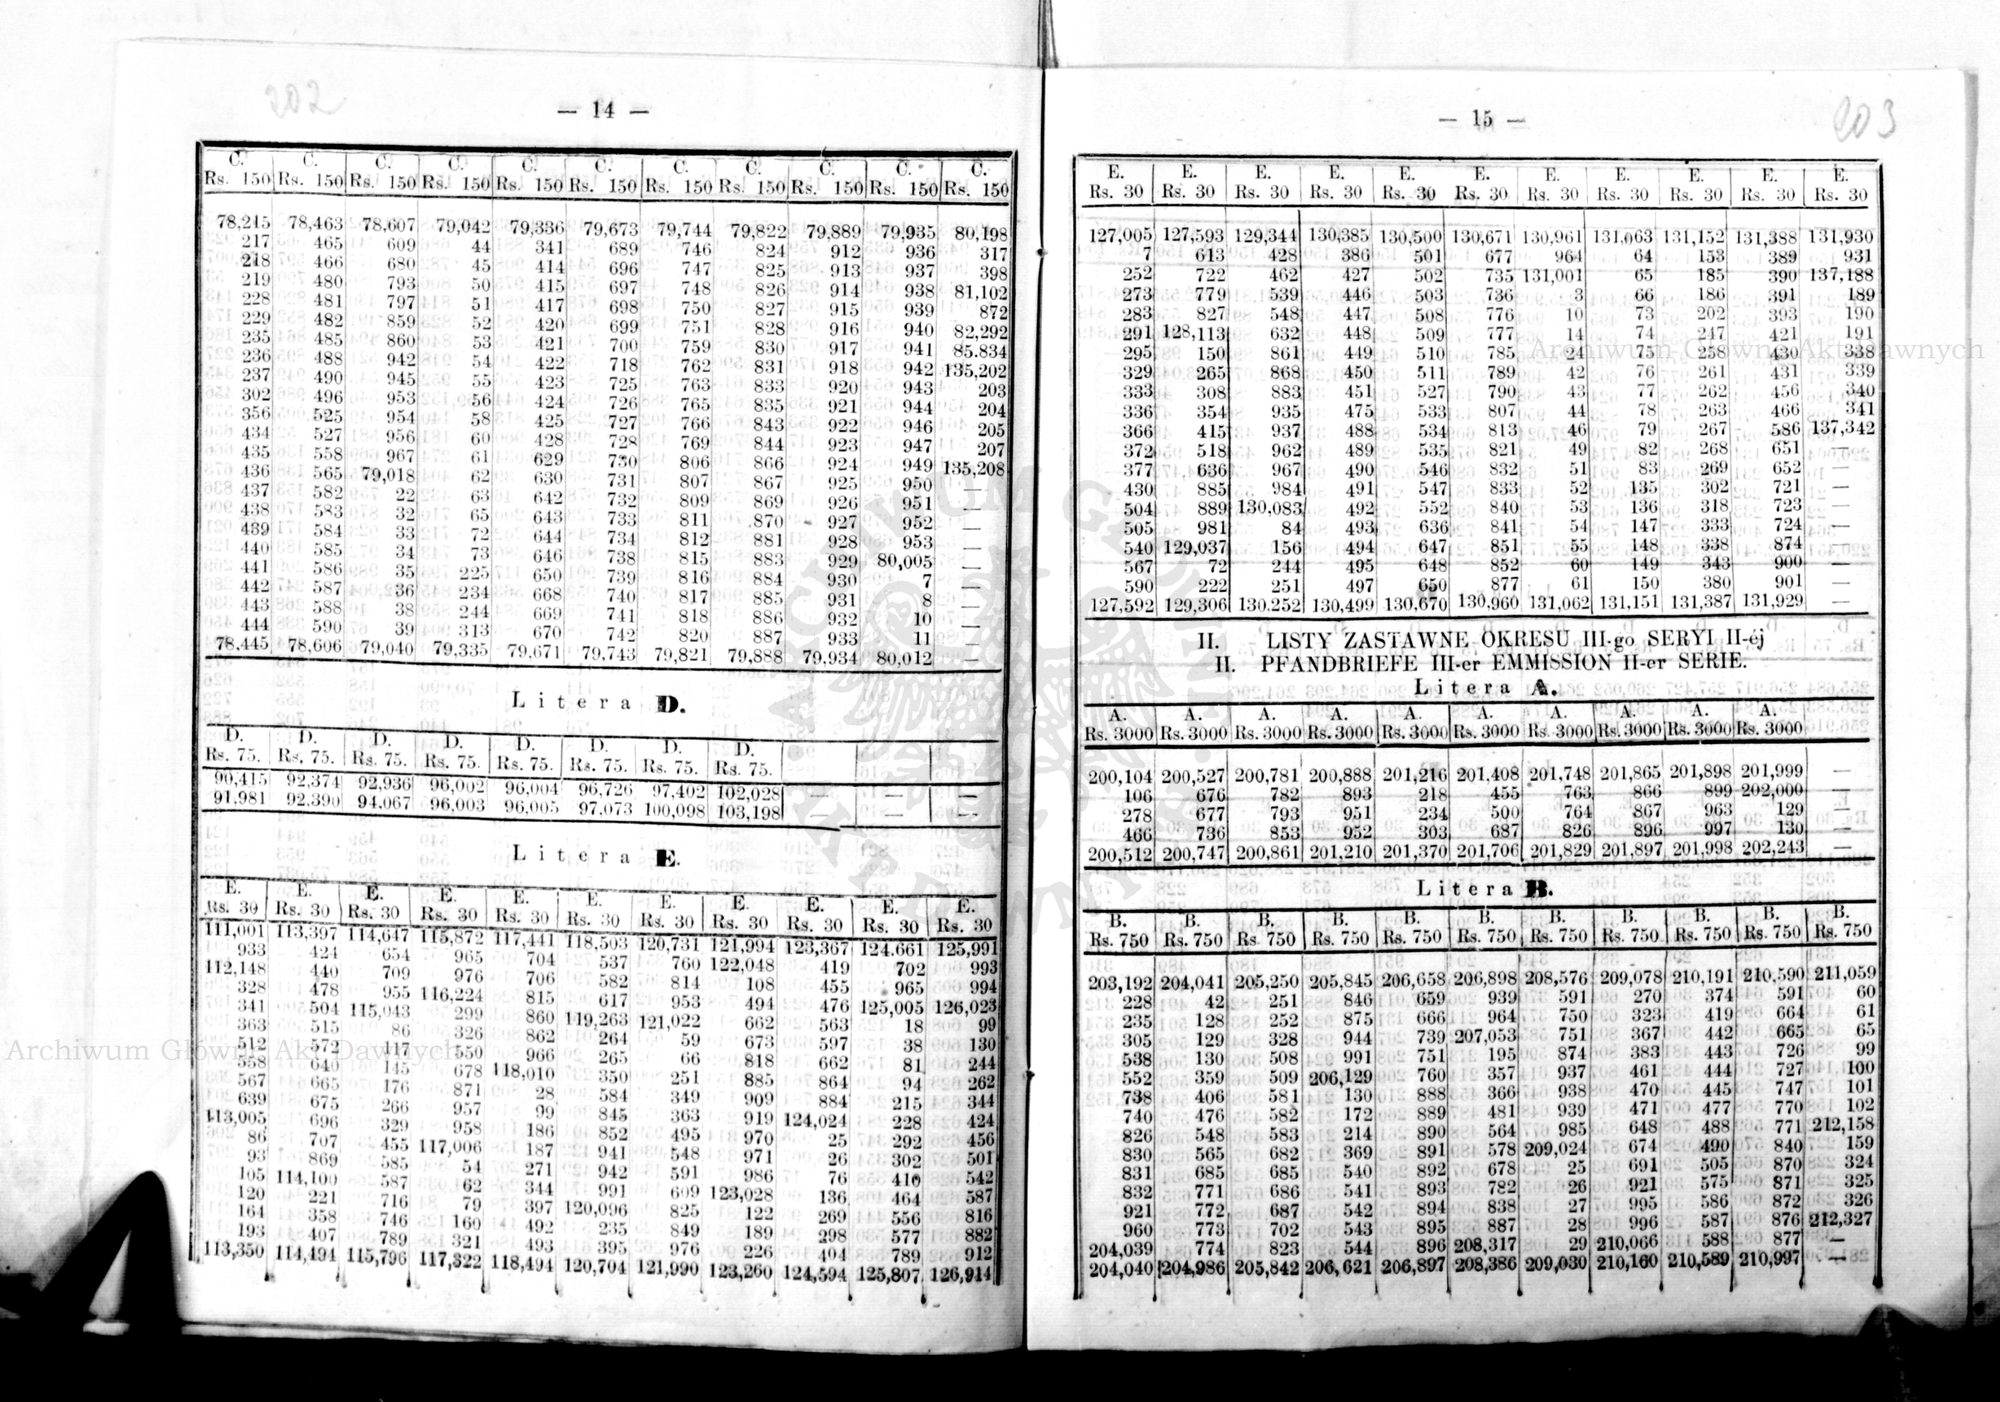 202
— 14 —
C. C. C. C. C. C. C. C. C. C. C.
Rs. 150 Rs. 150 Rs. 150 Rs. 150 Rs. 150 Rs. 150 Rs. 150 Rs. 150 Rs. 150 Rs. 150 Rs. 150
78,215 78,463 78,607 79,042 79,336 79,673 79,744 79,822 79,889 79,935 80,198
217 465 609 44 341 689 746 824 912 936 317
218 466 680 45 414 696 747 825 913 937 398
219 480 793 50 415 697 748 826 914 938 81,102
228 481 797 51 417 698 750 827 915 939 872
229 482 859 52 420 699 751 828 916 940 82,292
235 485 860 53 421 700 759 830 917 941 85.834
236 488 942 54 422 718 762 831 918 942 135,202
237 490 945 55 423 725 763 833 920 943 203
302 496 953 56 424 726 765 835 921 944 204
356 525 954 58 425 727 766 843 922 946 205
434 527 956 60 428 728 769 844 923 947 207
435 558 967 61 629 730 806 866 924 949 135,208
436 565 79,018 62 630 731 807 867 925 950 —
437 582 22 63 642 732 809 869 926 951 —
438 583 32 65 643 733 811 870 927 952 —
439 584 33 72 644 734 812 881 928 953 —
440 585 34 73 646 738 815 883 929 80,005 —
441 586 35 225 650 739 816 884 930 7 —
442 587 36 234 668 740 817 885 931 8 —
443 588 38 244 669 741 818 886 932 10 —
444 590 39 313 670 742 820 887 933 11 —
78,445 78,606 79,040 79,335 79,671 79,743 79,821 79,888 79,934 80,012 —
Litera D.
D. D. D. D. D. D. D. D.
Rs. 75. Rs. 75. Rs. 75. Rs. 75. Rs. 75. Rs. 75. Rs. 75. Rs. 75. — — —
90,415 92,374 92,936 96,002 96,004 96,726 97,402 102,028 — — —
91,981 92,390 94,067 96,003 96,005 97,073 100,098 103,198 — — —
Litera E.
E. E. E. E. E. E. E. E. E. E. E.
Rs. 30 Rs. 30 Rs. 30 Rs. 30 Rs. 30 Rs. 30 Rs. 30 Rs. 30 Rs. 30 Rs. 30 Rs. 30
111,001 113,397 114,647 115,872 117,441 118,503 120,731 121,994 123,367 124,661 125,991
933 424 654 965 704 537 760 122,048 419 702 993
112,148 440 709 976 706 582 814 108 455 965 994
328 478 955 116,224 815 617 953 494 476 125,005 126,023
341 504 115,043 299 860 119,263 121,022 662 563 18 99
363 515 86 326 862 264 59 673 597 38 130
512 572 117 550 966 265 66 818 662 81 244
558 640 145 678 118,010 350 251 885 864 94 262
567 665 176 871 28 584 349 909 884 215 344
639 675 266 957 99 845 363 919 124,024 228 424
113,005 696 329 958 186 852 495 970 25 292 456
86 707 455 117,006 187 941 548 971 26 302 501
93 869 585 54 271 942 591 986 76 410 542
105 114,100 587 62 344 991 609 123,028 136 464 587
120 221 716 79 397 120,096 825 122 269 556 816
164 358 746 160 492 235 849 189 298 577 882
193 407 789 321 493 395 976 226 404 789 912
113,350 114,494 115,796 117,322 118,494 120,704 121,990 123,260 124,594 125,807 126,914
203
— 15 —
E. E. E. E. E. E. E. E. E. E. E.
Rs. 30 Rs. 30 Rs. 30 Rs. 30 Rs. 30 Rs. 30 Rs. 30 Rs. 30 Rs. 30 Rs. 30 Rs. 30
127,005 127,593 129,344 130,385 130,500 130,671 130,961 131,063 131,152 131,388 131,930
7 613 428 386 501 677 964 64 153 389 931
252 722 462 427 502 735 131,001 65 185 390 137,188
273 779 539 446 503 736 3 66 186 391 189
283 827 548 447 508 776 10 73 202 393 190
291 128,113 632 448 509 777 14 74 247 421 191
295 150 861 449 510 785 24 75 258 430 338
329 265 868 450 511 789 42 76 261 431 339
333 308 883 451 527 790 43 77 262 456 340
336 354 935 475 533 807 44 78 263 466 341
366 415 937 488 534 813 46 79 267 586 137,342
372 518 962 489 535 821 49 82 268 651 —
377 636 967 490 546 832 51 83 269 652 —
430 885 984 491 547 833 52 135 302 721 —
504 889 130,083 492 552 840 53 136 318 723 —
505 981 84 493 636 841 54 147 333 724 —
540 129,037 156 494 647 851 55 148 338 874 —
567 72 244 495 648 852 60 149 343 900 —
590 222 251 497 650 877 61 150 380 901 —
127,592 129,306 130.252 130,499 130,670 130,960 131,062 131,151 131,387 131,929 —
II. LISTY ZASTAWNE OKRESU III-go SERYI II-éj
II. PFANDBRIEFE III-er EMMISSION II-er SERIE.
Litera A.
A. A. A. A. A. A. A. A. A. A.
Rs. 3000 Rs. 3000 Rs. 3000 Rs. 3000 Rs. 3000 Rs. 3000 Rs. 3000 Rs. 3000 Rs. 3000 Rs. 3000
200,104 200,527 200,781 200,888 201,216 201,408 201,748 201,865 201,898 201,999 —
106 676 782 893 218 455 763 866 899 202,000 —
278 677 793 951 234 500 764 867 963 129 —
466 736 853 952 303 687 826 896 997 130 —
200,512 200,747 200,861 201,210 201,370 201,706 201,829 201,897 201,998 202,243 —
Litera B.
B. B. B. B. B. B. B. B. B. B. B.
Rs. 750 Rs. 750 Rs. 750 Rs. 750 Rs. 750 Rs. 750 Rs. 750 Rs. 750 Rs. 750 Rs. 750 Rs. 750
203,192 204,041 205,250 205,845 206,658 206,898 208,576 209,078 210,191 210,590 211,059
228 42 251 846 659 939 591 270 374 591 60
235 128 252 875 666 964 750 323 419 664 61
305 129 328 944 739 207,053 751 367 442 665 65
538 130 508 991 751 195 874 383 443 726 99
552 359 509 206,129 760 357 937 461 444 727 100
738 406 581 130 888 366 938 470 445 747 101
740 476 582 172 889 481 939 471 477 770 102
826 548 583 214 890 564 985 648 488 771 212,158
830 565 682 369 891 578 209,024 674 490 840 159
831 685 685 540 892 678 25 691 505 870 324
832 771 686 541 893 782 26 921 575 871 325
921 772 687 542 894 838 27 995 586 872 326
960 773 702 543 895 887 28 996 587 876 212,327
204,039 774 823 544 896 208,317 29 210,066 588 877 —
204,040 204,986 205,842 206,621 206,897 208,386 209,030 210,160 210,589 210,997 —
Archiwum Główne Akt Dawnych
Archiwum Główne Akt Dawnych
ARCHIWUM GŁÓWNE AKT DAWNYCH